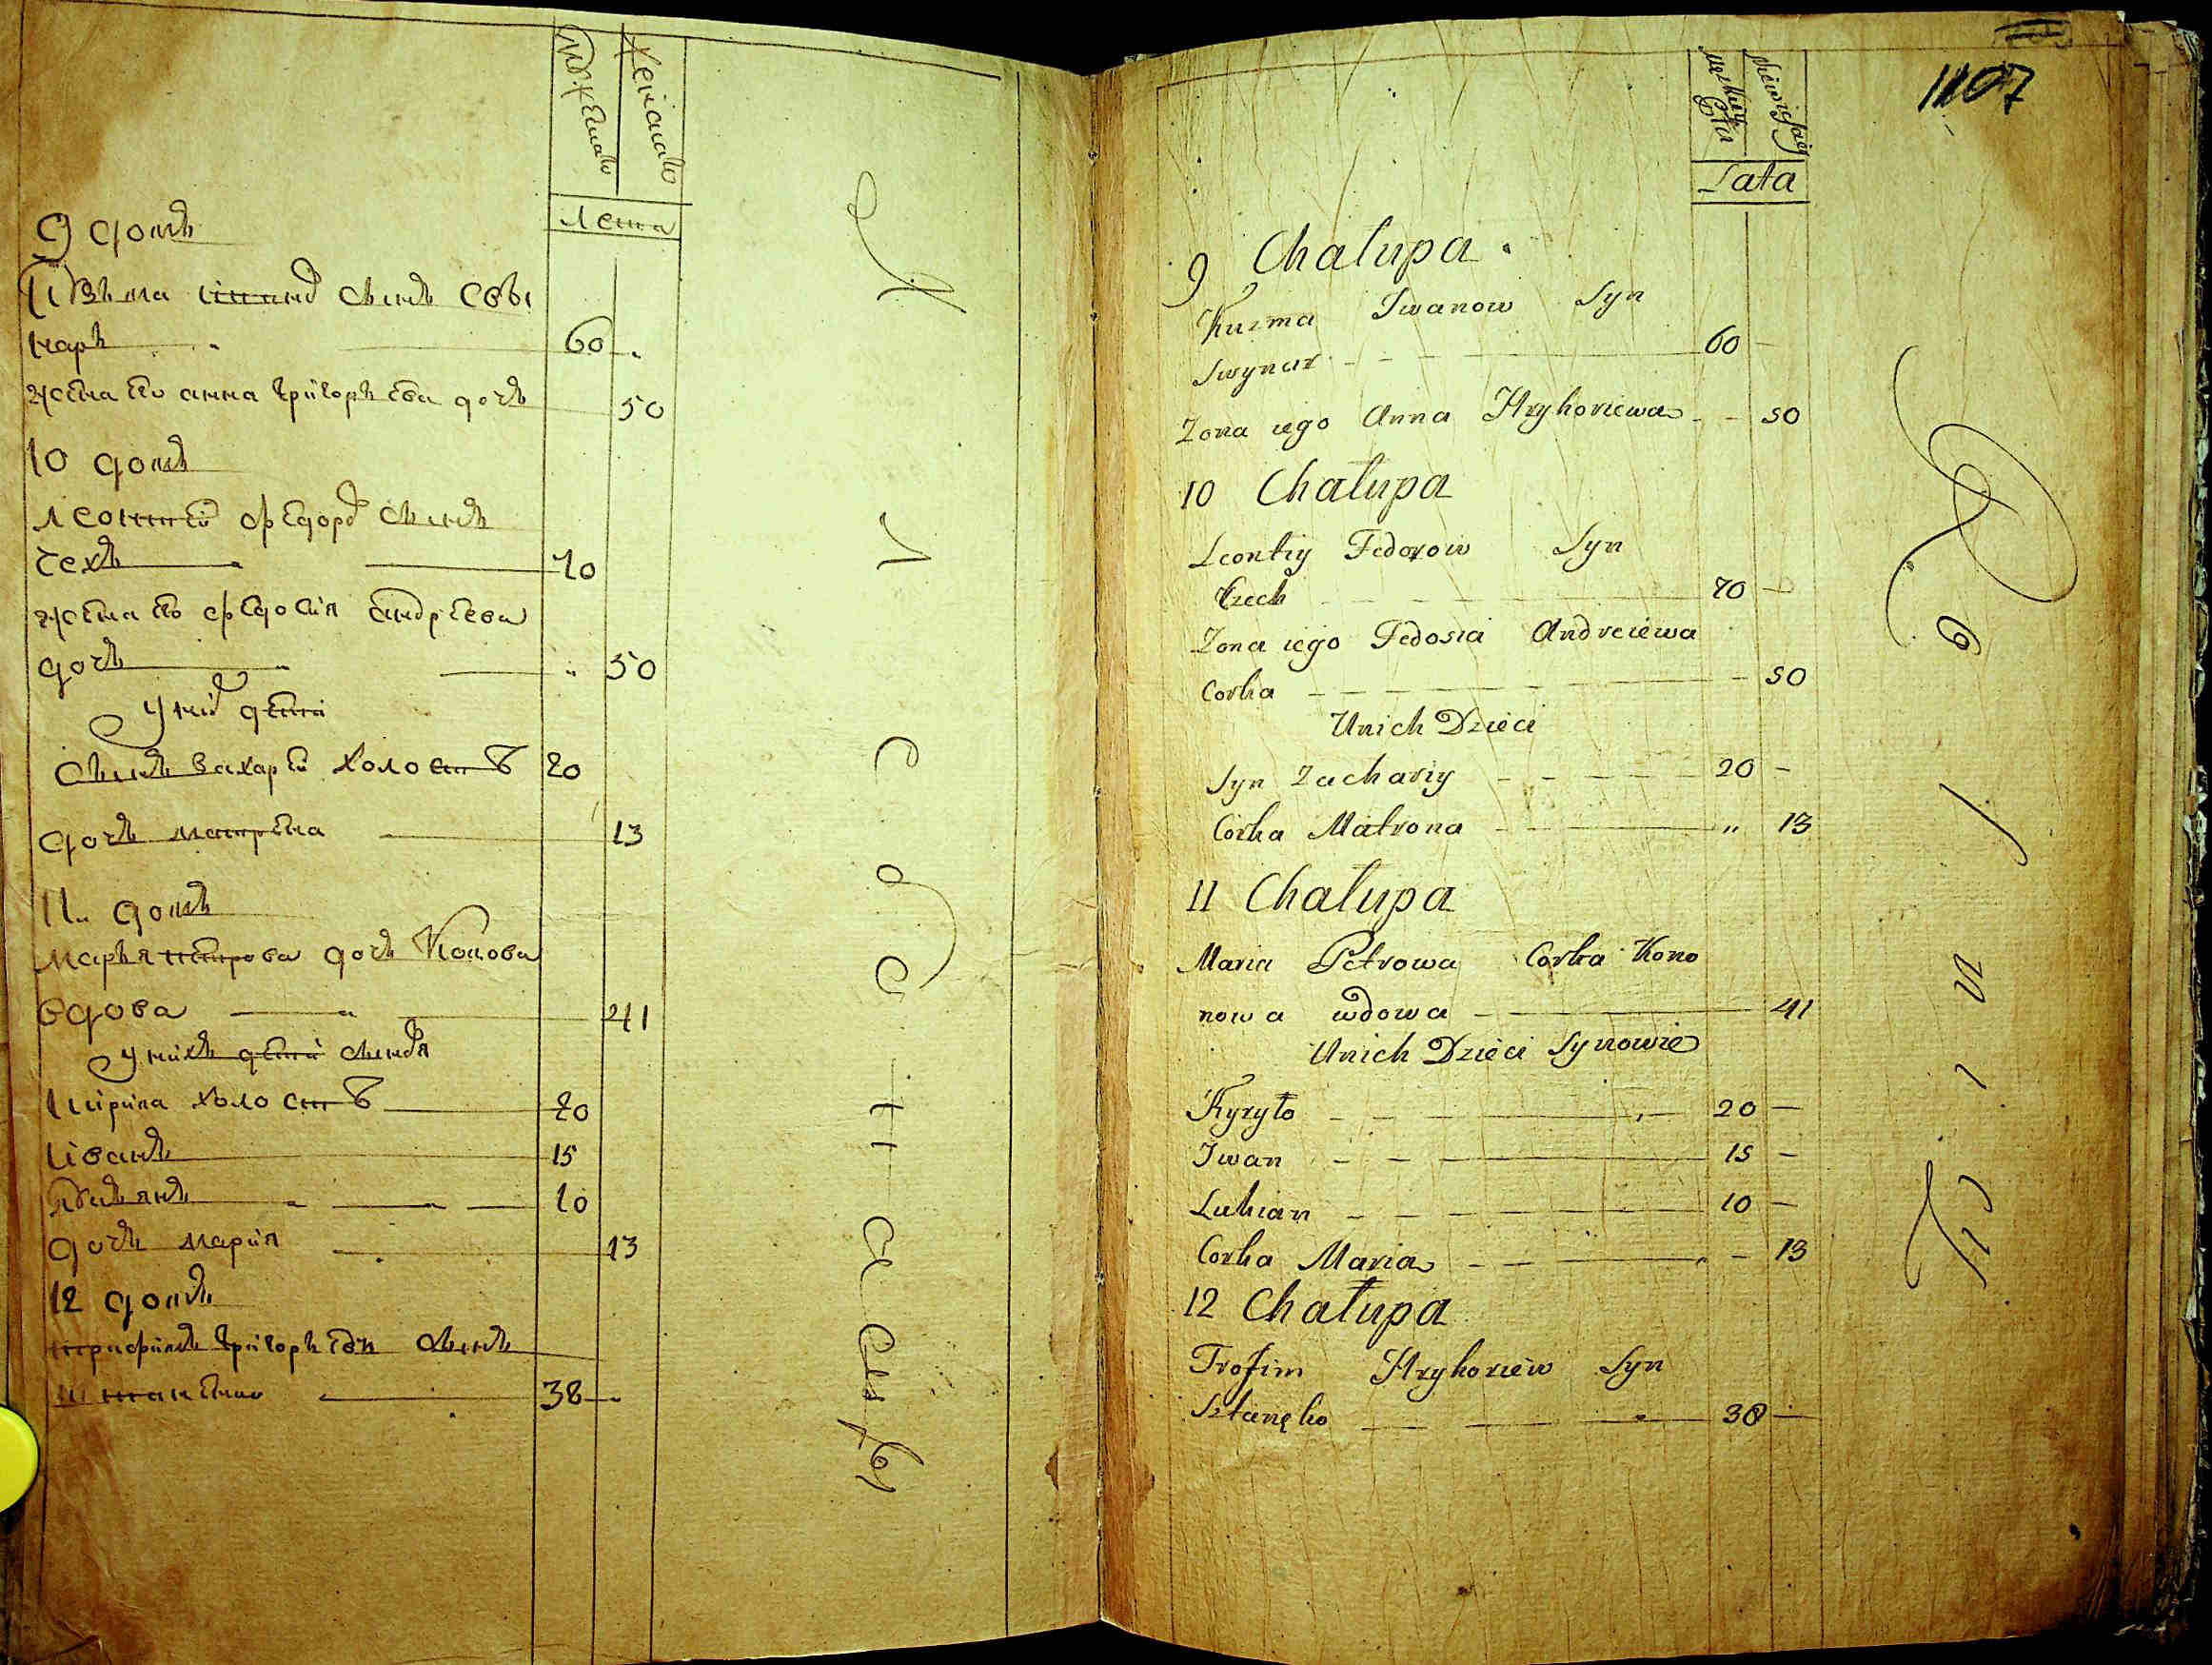 Мужеска
Женска
Лета
9 домъ
Кузьма иванов сынъ Сви
наръ 60
жена его анна григорьева дочь 50
10 домъ
леонтей федоров сынъ
чехъ 70
жена его федосия андреева
дочь 50
У них дети
сынъ захарей холост 20
дочь матрена 13
11 домъ
марья петрова дочь
вдова 41
У нихъ дети сыновя
кирила холост 20
иванъ 15
лукъянъ 10
дочь мария 13
12 домъ
трифимъ григорьев сынъ
штаненко 38
1107
Lata
9 Chałupa
Kuzma Iwanow Syn
Swynar 60
Zona iego Anna Hryhoriewa 50
10 Chałupa
Leontiy Fedorow Syn
Czech 70
Zona iego Fedosia Andreiewa
Corka 50
Unich Dzieci
Syn Zachariy 20
Corka Matrona " 13
11 Chałupa
Maria Petrowa Corka Kono
nowa wdowa 41
Unich Dzieci Synowie
Kyryło 20
Iwan 15
Lukian 10
Corka Maria 13
12 Chałupa
Trofim Hryhoriew Syn
Sztanęko 38